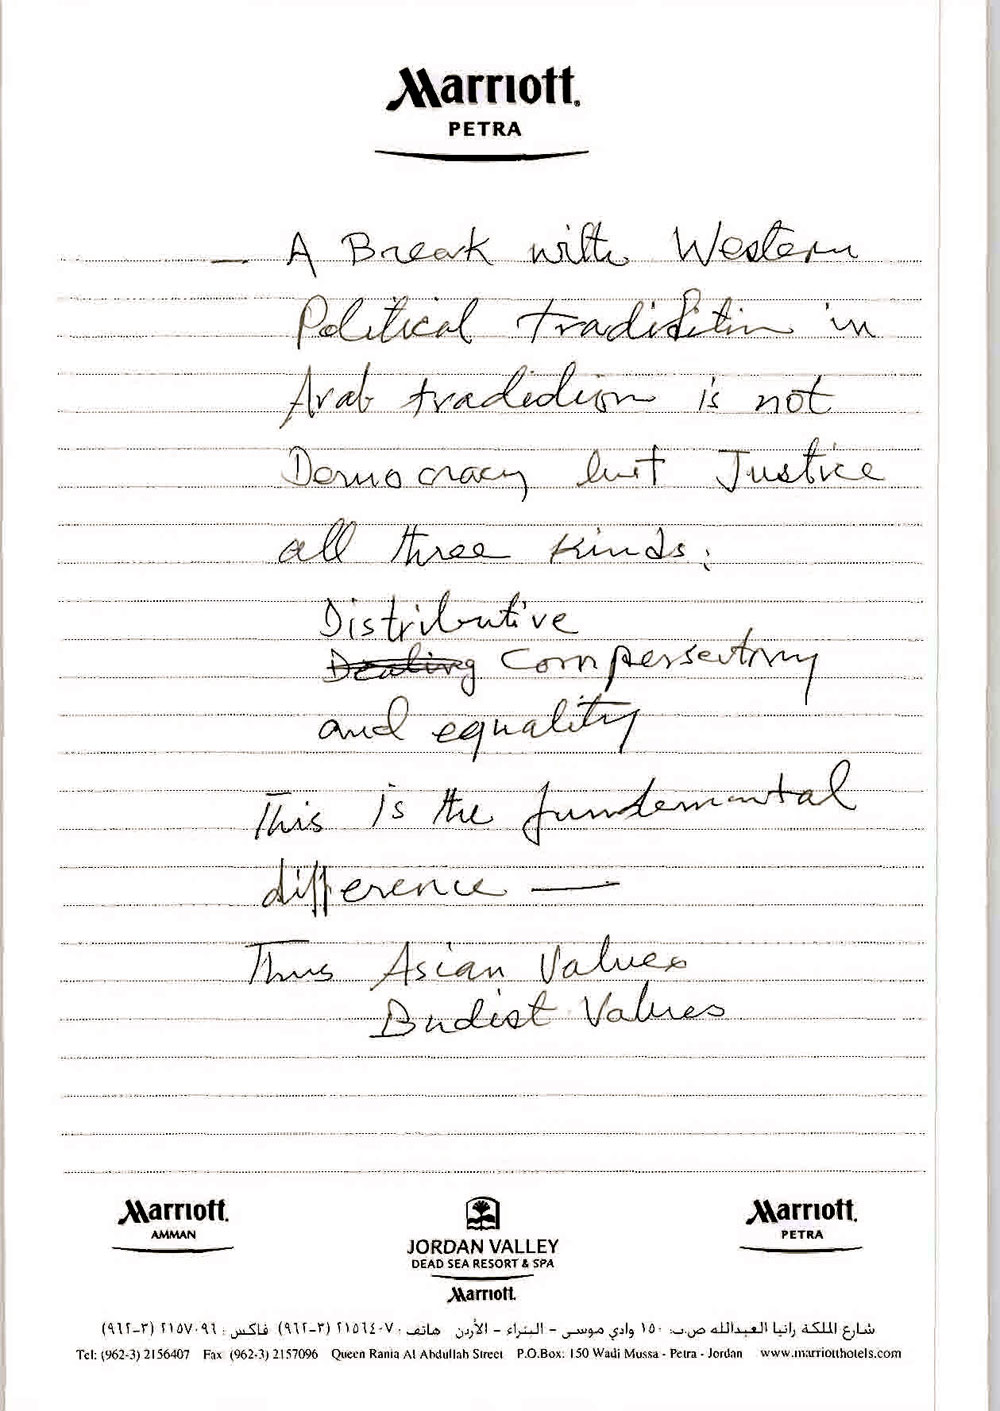 Marriott.
PETRA
— A Break with Western
Political tradidition in
Arab tradidion is not
Democracy but Justice
all three kinds:
Distributive
Dealing Compersectory
and equality
This is the fundemental
difference —
Thus Asian Values
Budist Values
Marriott. AMMAN
JORDAN VALLEY
DEAD SEA RESORT & SPA
Marriott.
Marriott. PETRA
شارع الملكة رانيا العبدالله ص.ب: ١٥٠ وادي موسى - البتراء - الأردن هاتف: ٢١٥٦٤٠٧ (٣-٩٦٢) فاكس: ٢١٥٧٠٩٦ (٣-٩٦٢)
Tel: (962-3) 2156407 Fax (962-3) 2157096 Queen Rania Al Abdullah Street P.O.Box: 150 Wadi Mussa - Petra - Jordan www.marriotthotels.com